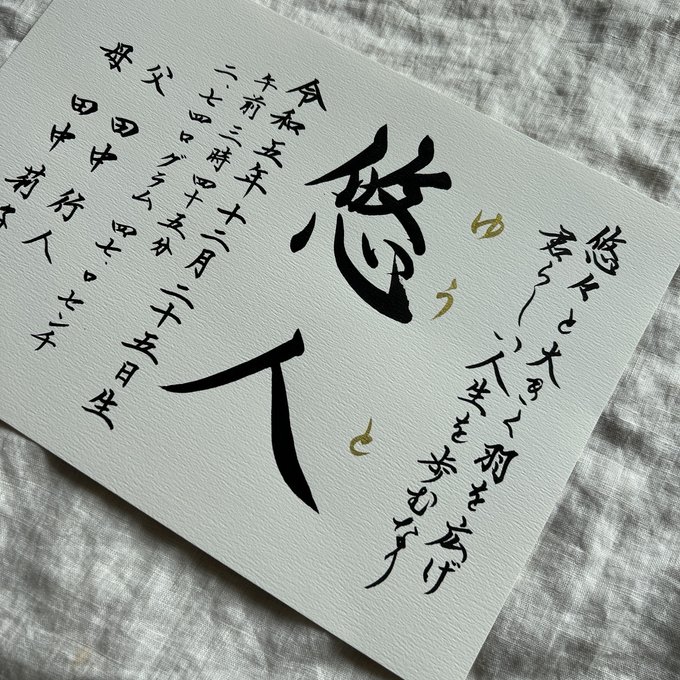 悠々と大きく羽を広げ
君らしい人生を歩むなり
ゆうと
悠人
令和五年十二月二十五日生
午前三時四十五分
二・七四〇グラム 四七・〇センチ
父 田中 行人
母 田中 莉